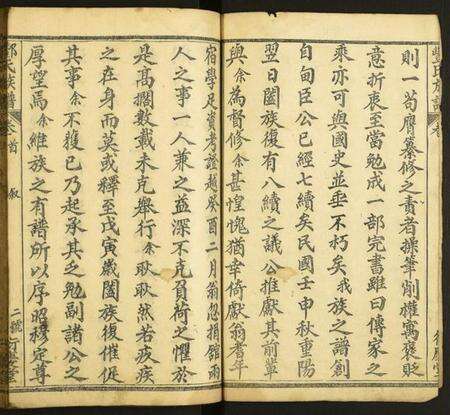 則一苟膺纂修之責者操筆削權寓褒貶
意折衷至當勉成一部完書雖曰傳家之
乘亦可與國史並垂不朽矣我族之譜創
自甸臣公已經七續矣民國壬申秋重陽
翌日闔族復有八續之議公推獻其前輩
與余為督修余甚惶愧猶幸倚獻翁耆年
宿學足資考證越癸酉二月翁忽捐館兩
人之事一人兼之益深不克負荷之懼於
是髙擱數載未克舉行余耿耿然若疢疾
之在身而莫或釋至戊寅歲闔族復催促
其事余不獲已乃起承其乏勉副諸公之
厚望焉余維族之有譜所以序昭穆定尊
氏族譜 卷首 敘